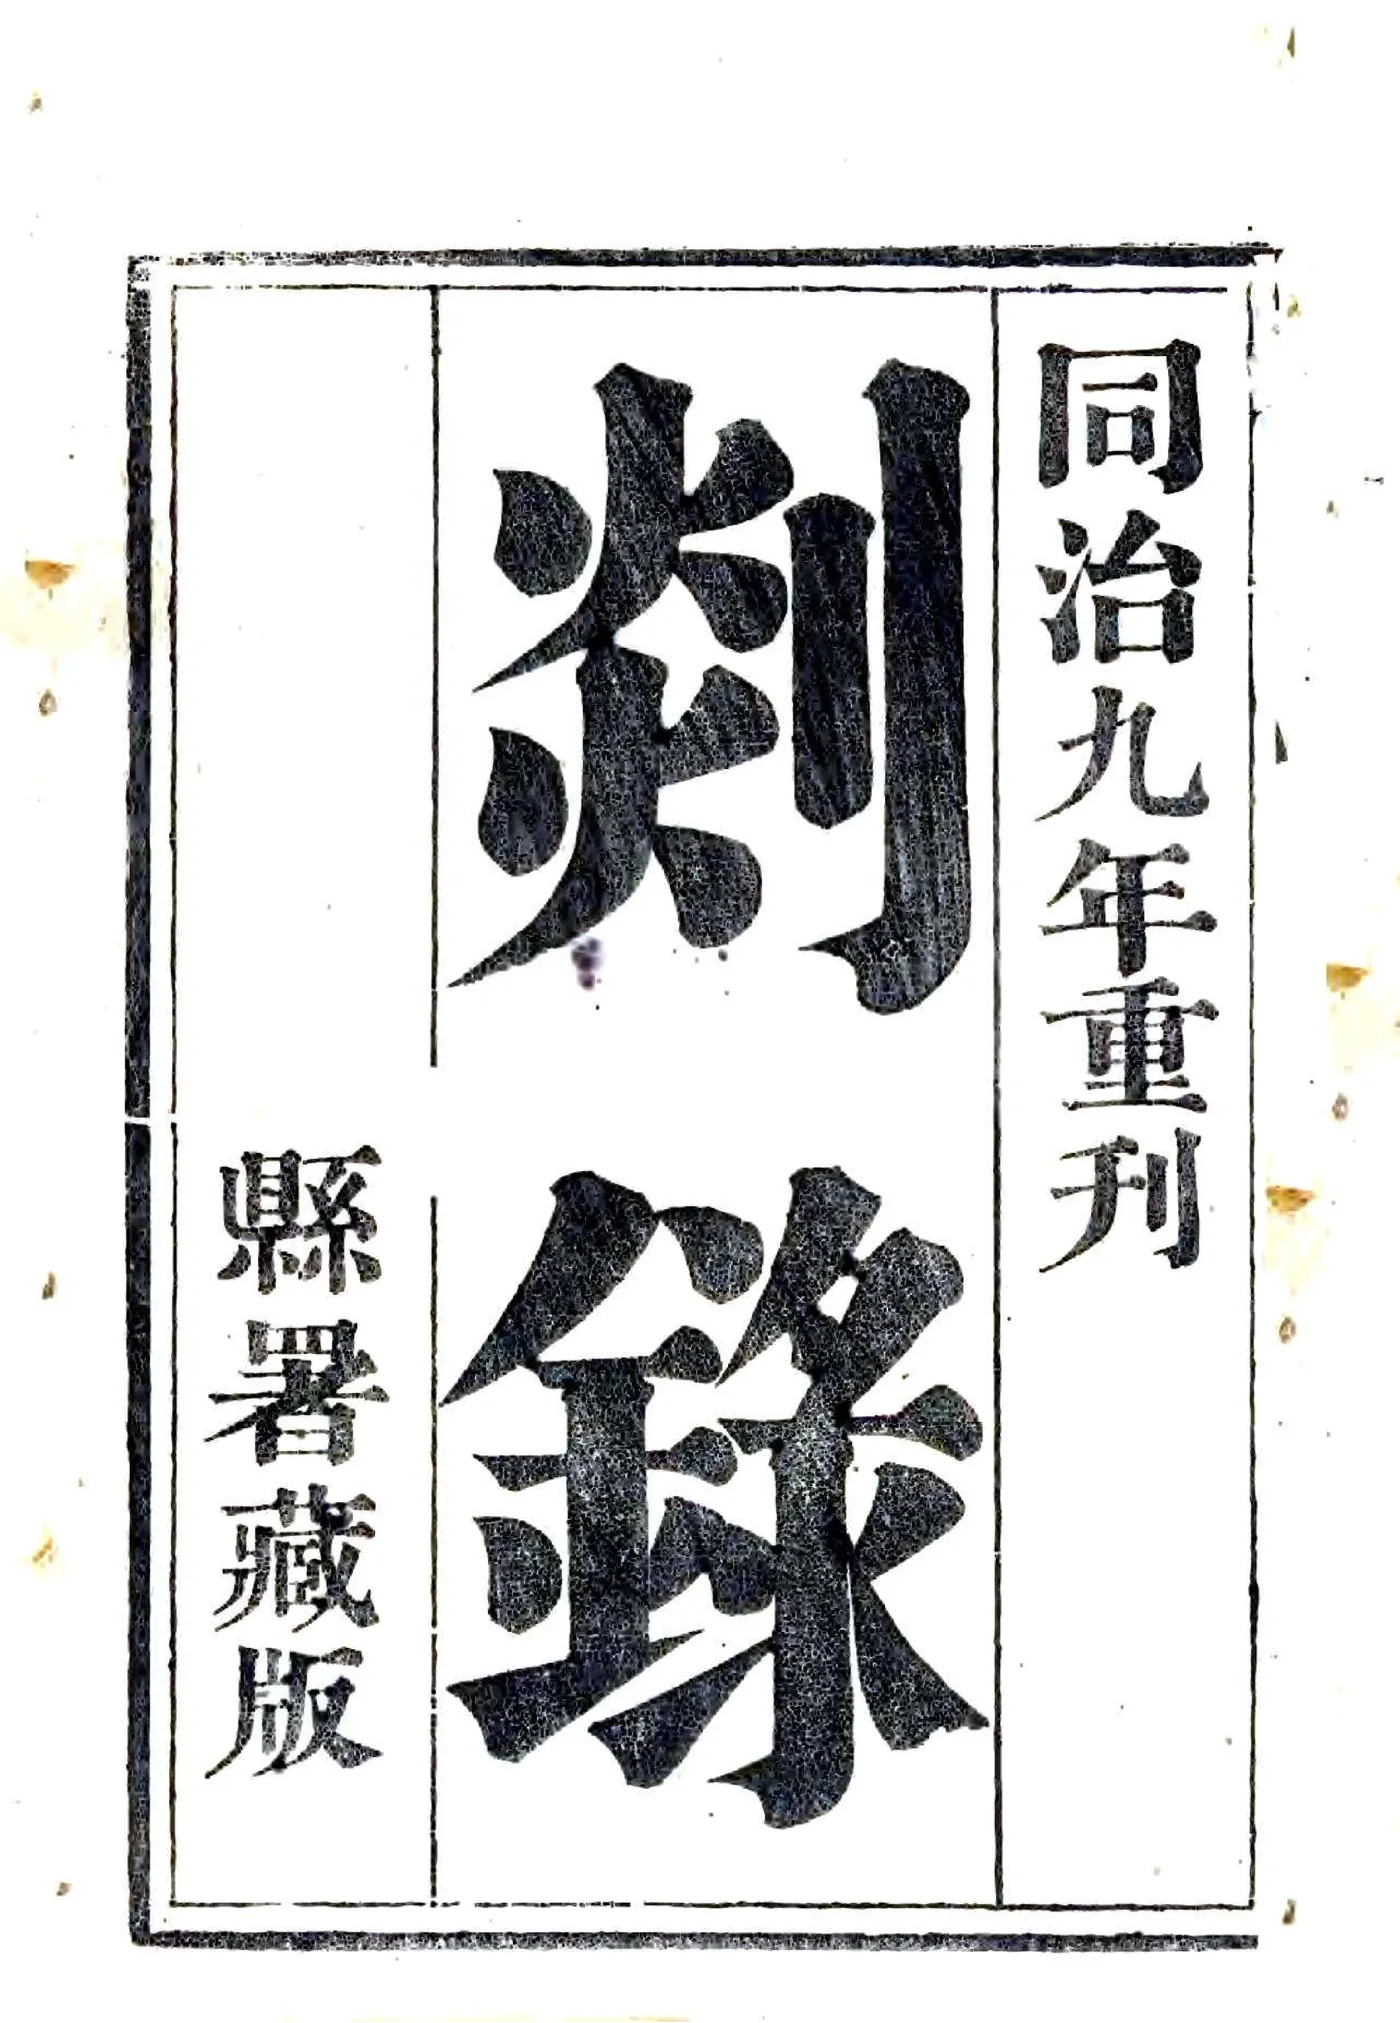 同治九年重刋
剡錄
縣署藏版